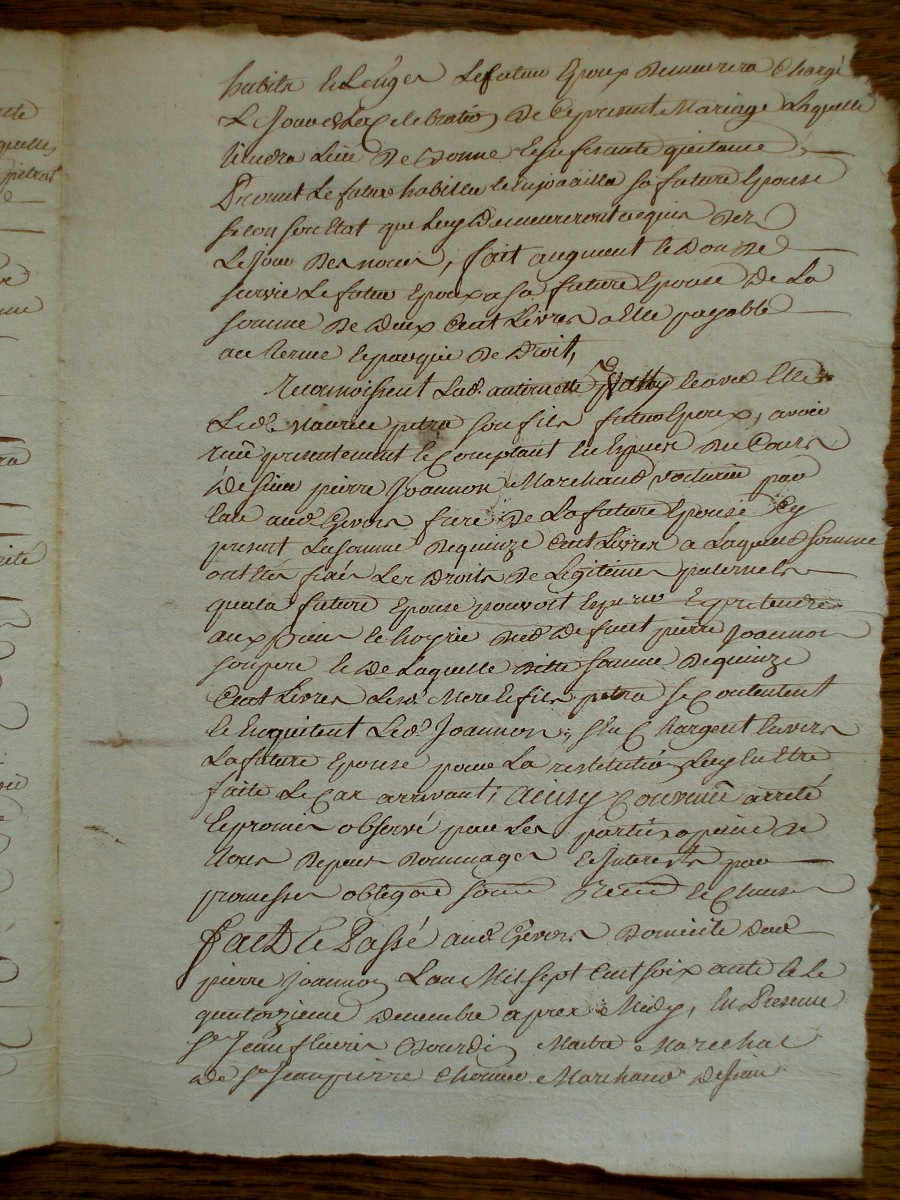 habits et Linges Le futur Epoux demeurera Chargé
Le Jour de La Celebration de Ce present Mariage Laquelle
tiendra Lieu de bonne et sufisante quitance
Promet Le futur habiller et enjoailler sa future Epouse
selon son Etat que Luy demeureront acquis des
Le Jour des noces, fait augment et Don de
survie Le futur Epoux a sa future Epouse de La
somme de deux Cent Livres a Elle payable
au terme Epoque de Droit,
Reconnoissent Lad. antoinette et avec Elle
Led. Maurice petra son fils futur Epoux, avoir
reçu presentement et Comptant en Especes du Cours
de sieur pierre Joannon Marchand voiturier par
Eau aud. Givors frere de La future Epouse Cy
present La somme de quinze Cent Livres a Laquelle somme
ont été fixés Les Droits de Legitime paternels
que La future Epouse pouvoit Esperer Et pretendre
aux biens et hoyrie dud. defunt pierre Joannon
son pere et de Laquelle ditte somme de quinze
Cent Livres Lesd. Mere et fils petra se Contentent
et En quittent Led. Joannon, s'En Chargent Envers
La future Epouse pour La restitution Luy En Etre
faite Le Cas arrivant, ainsy Convenu arreté
et promis observé par Les parties a peine de
tous depens dommages et Interests par
promesses obligaõn soum renon et Clauses
fait et Passé aud. Givors Domicile dud.
pierre Joannon L'an Mil sept Cent soixante et le
quatorzieme decembre apres Midy, En Presence
sr Jean Bourdin Maitre Marechal
de sr Jean pierre Marchand de sieur